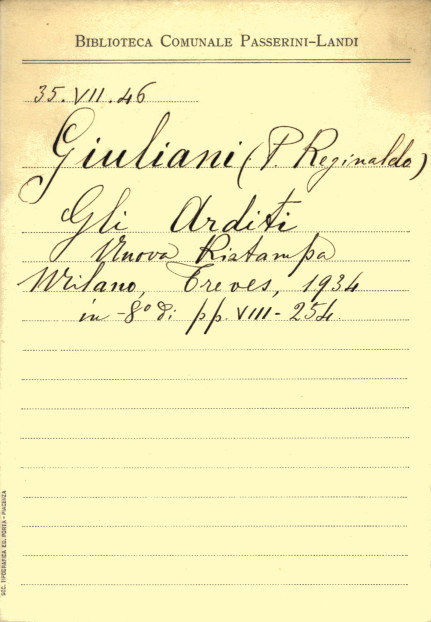 BIBLIOTECA COMUNALE PASSERINI-LANDI
35.VII.46
Giuliani (P. Reginaldo)
Gli Arditi
Nuova Ristampa
Milano, Treves, 1934
in -8° di pp. VIII - 254.
SOC. TIPOGRAFICA ED. PORTA - PIACENZA